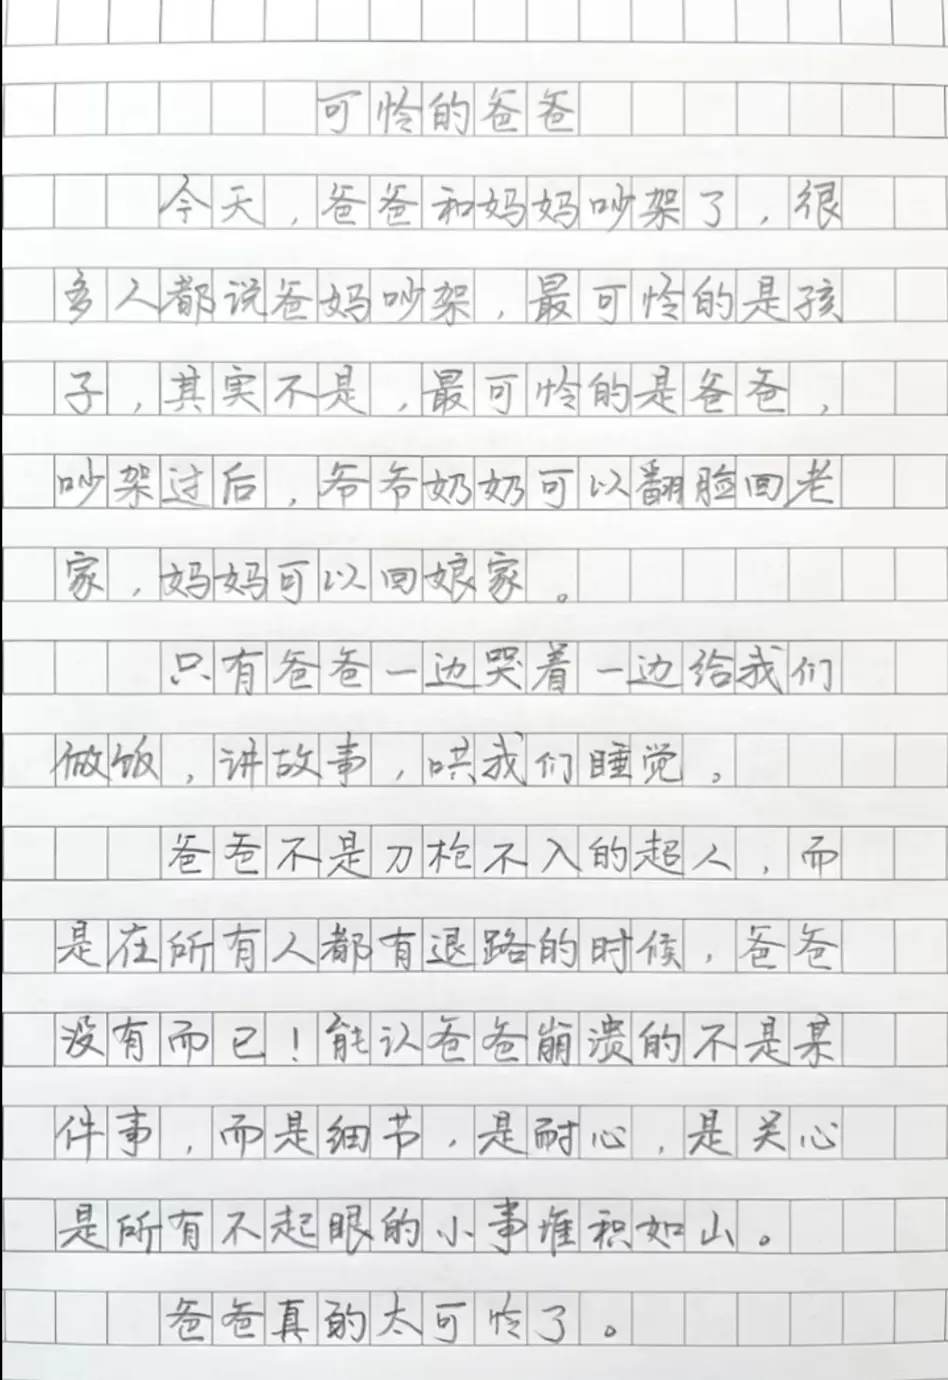 可怜的爸爸
今天,爸爸和妈妈吵架了,很
多人都说爸妈吵架,最可怜的是孩
子,其实不是,最可怜的是爸爸,
吵架过后,爷爷奶奶可以翻脸回老
家,妈妈可以回娘家。
只有爸爸一边哭着一边给我们
做饭,讲故事,哄我们睡觉。
爸爸不是刀枪不入的超人,而
是在所有人都有退路的时候,爸爸
没有而已!能认爸爸崩溃的不是某
件事,而是细节,是耐心,是关心
是所有不起眼的小事堆积如山。
爸爸真的太可怜了。